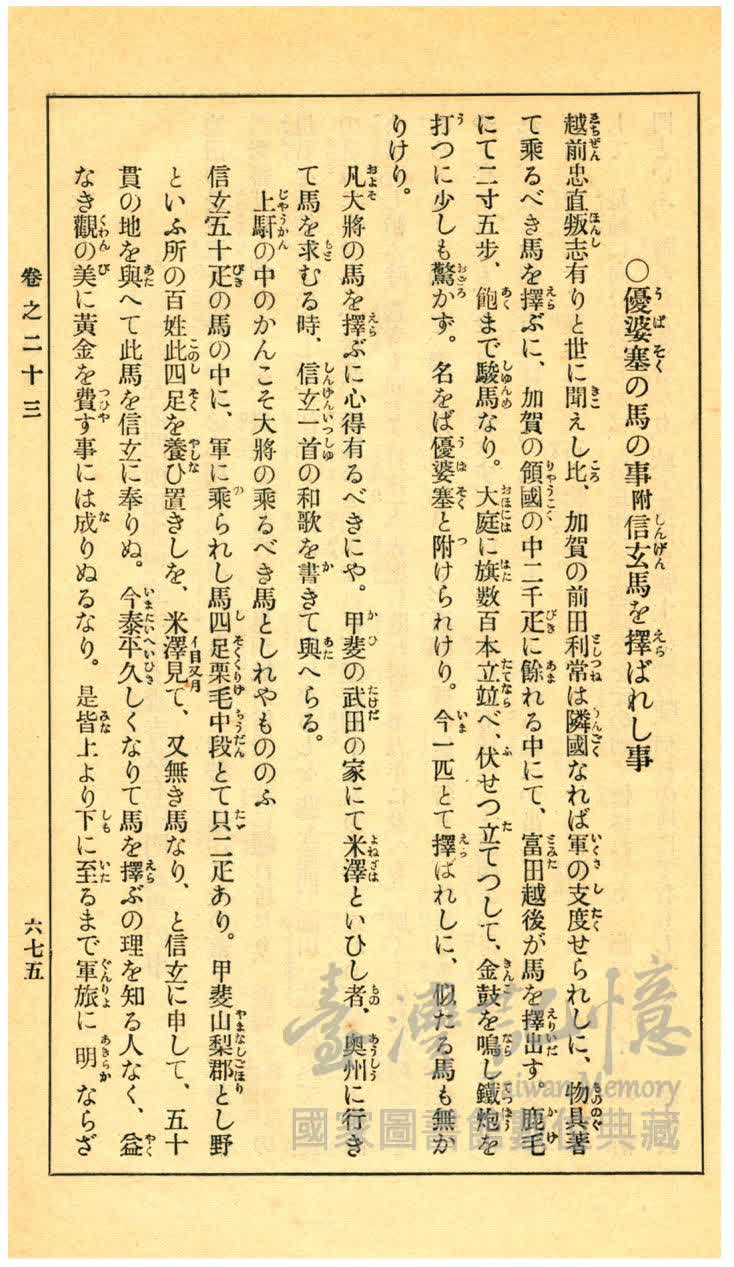 ○優婆塞の馬の事附信玄馬を擇ばれし事
越前忠直叛志有りと世に聞えし比、加賀の前田利常は隣國なれば軍の支度せられしに、物具著
て乘るべき馬を擇ぶに、加賀の領國の中二千疋に餘れる中にて、富田越後が馬を擇出す。鹿毛
にて二寸五步、飽まで駿馬なり。大庭に旗數百本立竝べ、伏せつ立てつして、金鼓を鳴し鐵炮を
打つに少しも驚かず。名をば優婆塞と附けられけり。今一匹とて擇ばれしに、似たる馬も無か
りけり。
凡大將の馬を擇ぶに心得有るべきにや。甲斐の武田の家にて米澤といひし者、奧州に行き
て馬を求むる時、信玄一首の和歌を書きて與へらる。
上馯の中のかんこそ大將の乘るべき馬としれやもののふ
信玄五十疋の馬の中に、軍に乘られし馬四足栗毛中段とて只二疋あり。甲斐山梨郡とし野
といふ所の百姓此四足を養ひ置きしを、米澤見て、又無き馬なり、と信玄に申して、五十
イ目又月
貫の地を與へて此馬を信玄に奉りぬ。今泰平久しくなりて馬を擇ぶの理を知る人なく、益
なき觀の美に黃金を費す事には成りぬるなり。是皆上より下に至るまで軍旅に明ならざ
卷之二十三
六七五
臺灣記憶
Taiwan Memory
國家圖書館數位典藏